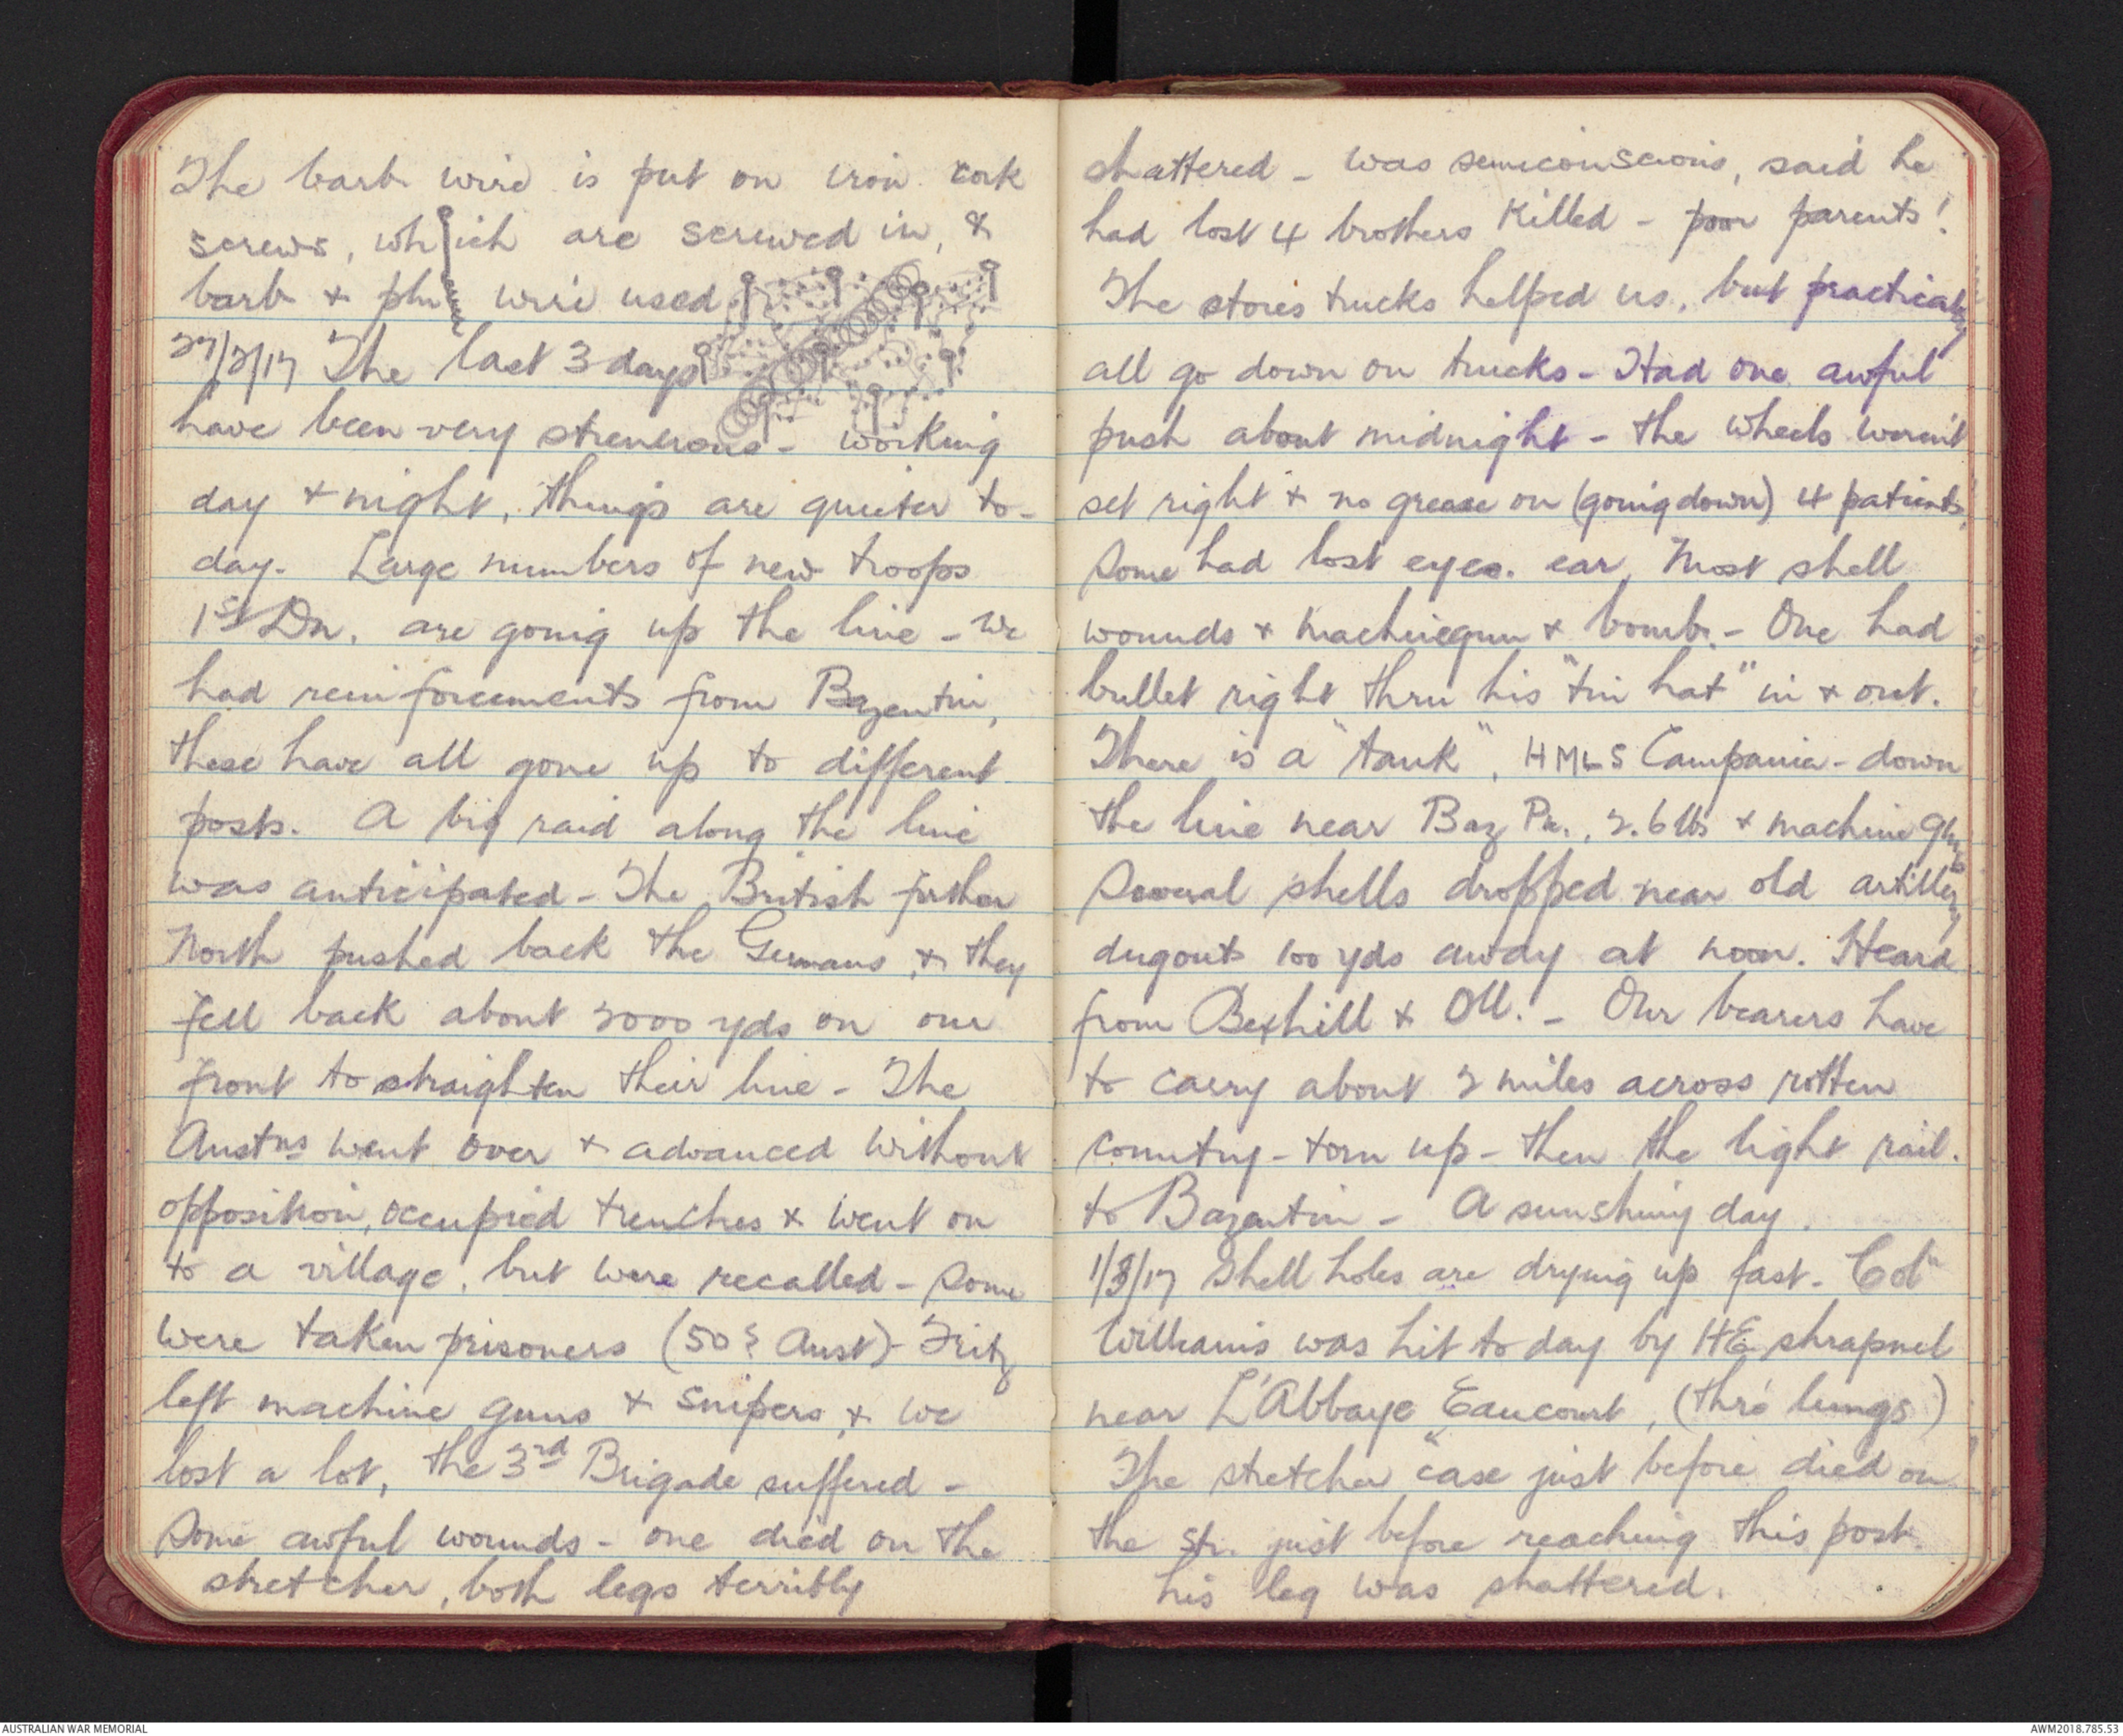 The barb wire is put on iron cork
screws, which are screwed in, &
barb & pln wire used
27/2/17 The last 3 days
have been very strenuous - working
day & night, things are quieter to-
day. Large numbers of new troops
1st Dn. are going up the line - we
had reinforcements from Bazentin,
these have all gone up to different
posts. A big raid along the line
was anticipated - The British further
North pushed back the Germans, & they
fell back about 2000 yds on our
front to straighten their line - The
Austns went over & advanced without
opposition, occupied trenches & went on
to a village, but were recalled - Some
were taken prisoners (50? Aust) - Fritz
left machine guns & snipers, & we
lost a lot, the 3rd Brigade suffered -
Some awful wounds - one died on the
stretcher, both legs terribly
shattered - was semiconscious, said he
had lost 4 brothers killed - poor parents!
The stores trucks helped us, but practically
all go down on trucks - Had one awful
push about midnight - the wheels weren't
set right & no grease on (going down) 4 patients,
Some had lost eyes. ear, Most shell
wounds & machinegun & bomb. - One had
bullet right thru his "tin hat" in & out.
There is a "tank", HMLS Campania - down
the line near Baz Pa., 2. 6 lbs & machine guns
Several shells dropped near old artillery
dugouts 100 yds away at noon. Heard
from Bexhill & Oll. - Our bearers have
to carry about 2 miles across rotten
country - torn up - then the light rail.
to Bazentin - A sunshiny day.
1/3/17 Shell holes are drying up fast. Coln
Williams was hit to day by HE shrapnel
near L'Abbaye Eaucourt, (thro' lungs)
The stretcher case just before died on
the str. just before reaching this post.
his leg was shattered.
AUSTRALIAN WAR MEMORIAL
AWM2018.785.53